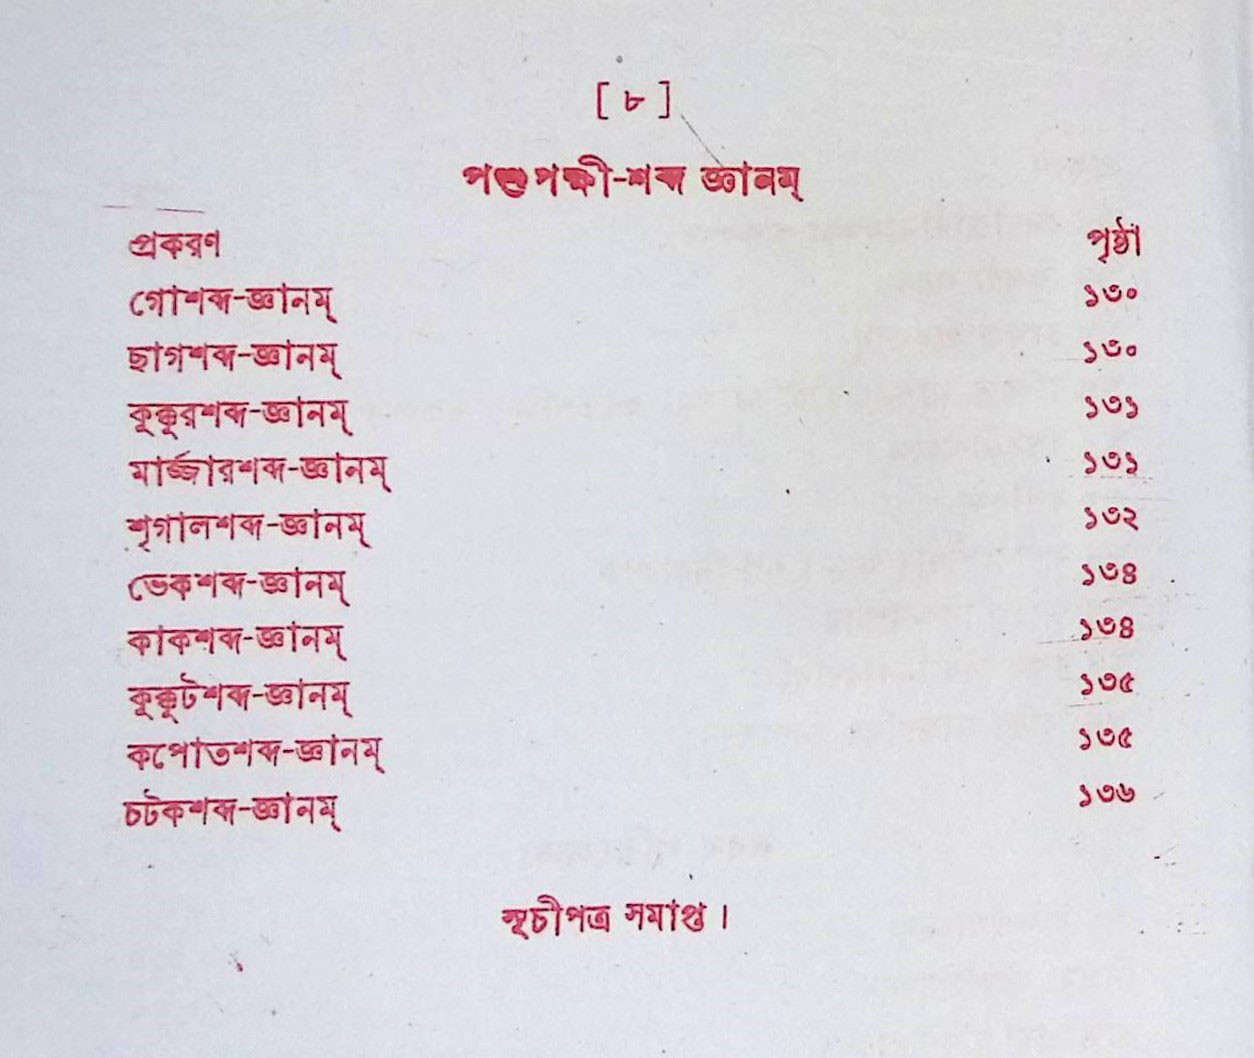 [ ৮ ]
পশুপক্ষী-শব্দ জ্ঞানম্
প্রকরণ পৃষ্ঠা
গোশব্দ-জ্ঞানম্ ১৩০
ছাগশব্দ-জ্ঞানম্ ১৩০
কুক্কুরশব্দ-জ্ঞানম্ ১৩১
মার্জ্জারশব্দ-জ্ঞানম্ ১৩১
শৃগালশব্দ-জ্ঞানম্ ১৩২
ভেকশব্দ-জ্ঞানম্ ১৩৪
কাকশব্দ-জ্ঞানম্ ১৩৪
কুক্কুটশব্দ-জ্ঞানম্ ১৩৫
কপোতশব্দ-জ্ঞানম্ ১৩৫
চটকশব্দ-জ্ঞানম্ ১৩৬
সূচীপত্র সমাপ্ত।